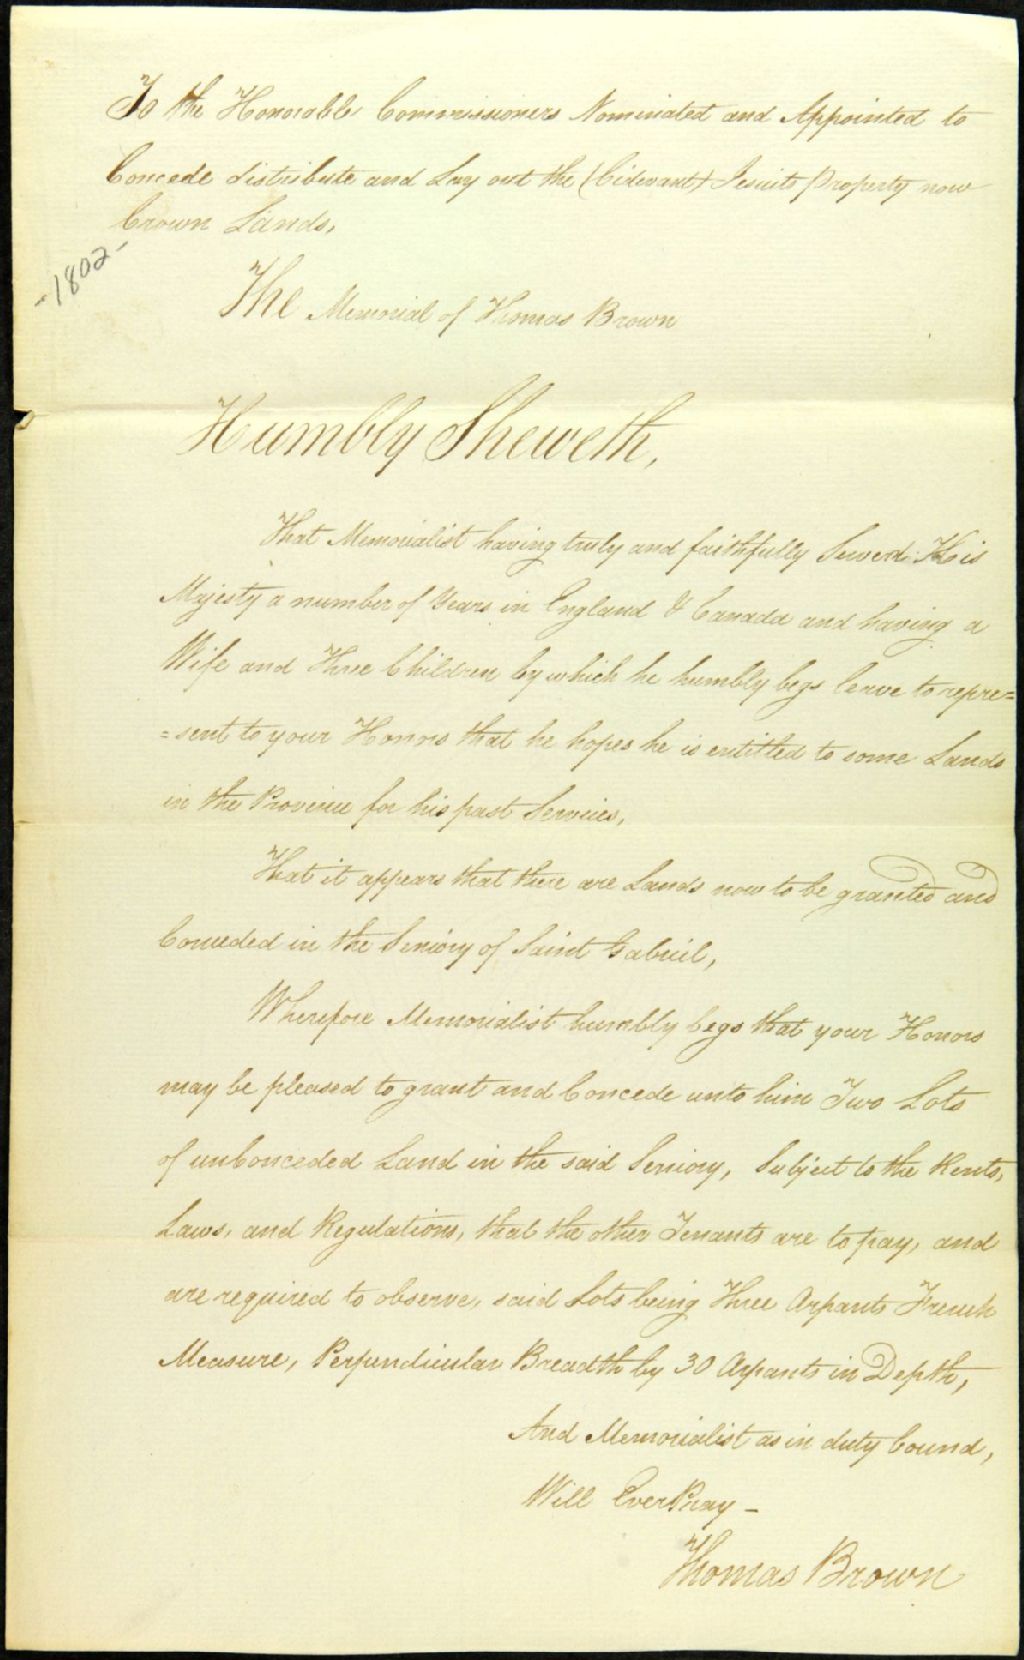 To the Honorable Commissioners Nominated and Appointed to
Concede distribute and Lay out the (Cidevant) Jesuits Property now
Crown Lands,
-1802-
The Memorial of Thomas Brown
Humbly Sheweth,
That Memorialist having truly and faithfully Served His
Majesty a number of Years in England & Canada and having a
Wife and Three Children by which he humbly begs leave to repre=
=sent to your Honors that he hopes he is entitled to some Lands
in the Province for his past Services,
That it appears that there are Lands now to be granted and
Conceded in the Seniory of Saint Gabriel,
Wherefore Memorialist humbly begs that your Honors
may be pleased to grant and Concede unto him Two Lots
of unConceded Land in the said Seniory, Subject to the Rents,
Laws, and Regulations, that the other Tenants are to pay, and
are required to observe, said Lots being Three Arpants French
Measure, Perpendicular Breadth by 30 Arpants in Depth,
And Memorialist as in duty bound,
Will Ever Pray -
Thomas Brown